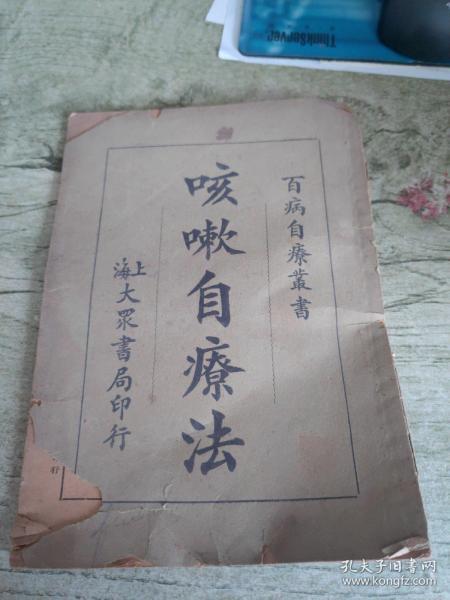 百病自療叢書
咳嗽自療法
上海大眾書局印行
行
ThinkServer
孔夫子旧书网
www.kongfz.com